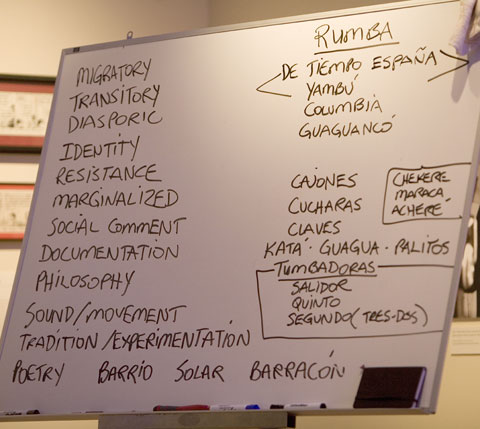 MIGRATORY
TRANSITORY
DIASPORIC
IDENTITY
RESISTANCE
MARGINALIZED
SOCIAL COMMENT
DOCUMENTATION
PHILOSOPHY
SOUND/MOVEMENT
TRADITION/EXPERIMENTATIÓN
POETRY BARRIO SOLAR BARRACÓN
RUMBA
DE TIEMPO ESPAÑA
YAMBÚ
COLUMBIA
GUAGUANCÓ
CAJONES
CUCHARAS
CLAVES
KATÁ · GUAGUA · PALITOS
CHEKERE
MARACA
ACHERÉ
TUMBADORAS
SALIDOR
QUINTO
SEGUNDO (TRES-DOS)